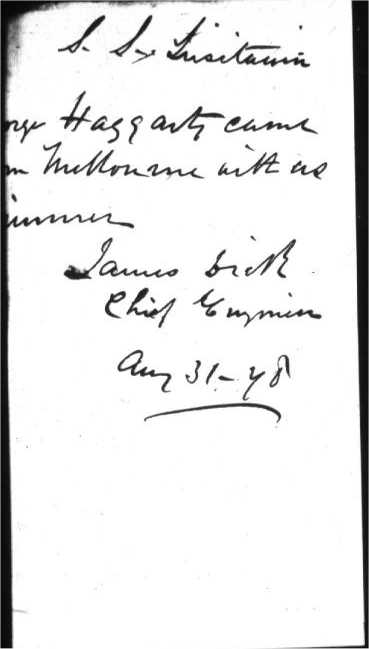 S. S. Lusitania
orge Haggarty came
om Melbourne with us
immer
James Dick
Chief Engineer
Aug 31-78